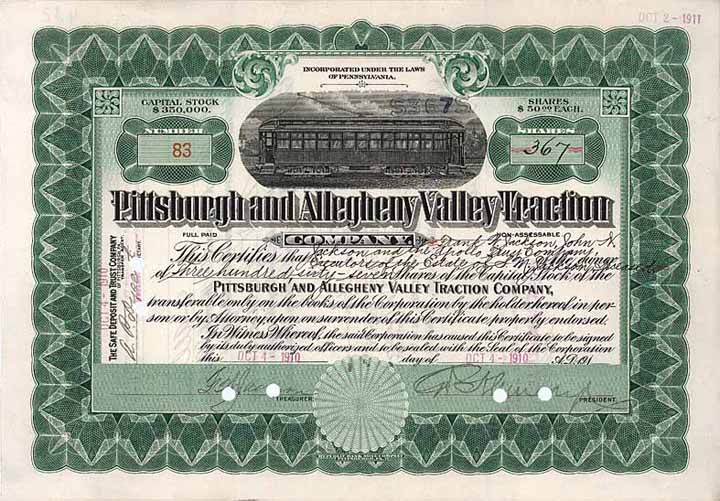 OCT 2 - 1911
INCORPORATED UNDER THE LAWS
OF PENNSYLVANIA.
CAPITAL STOCK
$ 350,000.
SHARES
$ 50.00 EACH.
NUMBER
83
SHARES
367
Pittsburgh and Allegheny Valley Traction
FULL PAID
COMPANY
NON-ASSESSABLE
This Certifies that Frank Jackson, John N.
Jackson and the Apollo Trust Company
Executors of
of Three hundred sixty-seven Shares of the Capital Stock of the
PITTSBURGH AND ALLEGHENY VALLEY TRACTION COMPANY,
transferable only on the books of the Corporation by the holder hereof in per-
son or by Attorney, upon surrender of this Certificate properly endorsed.
In Witness Whereof, the said Corporation has caused this Certificate to be signed
by its duly authorized officers and to be sealed with the Seal of the Corporation
this OCT 4 - 1910 day of OCT 4 - 1910 A.D. 191
TREASURER
PRESIDENT.
THE SAFE DEPOSIT AND TRUST COMPANY
OCT 4 - 1910